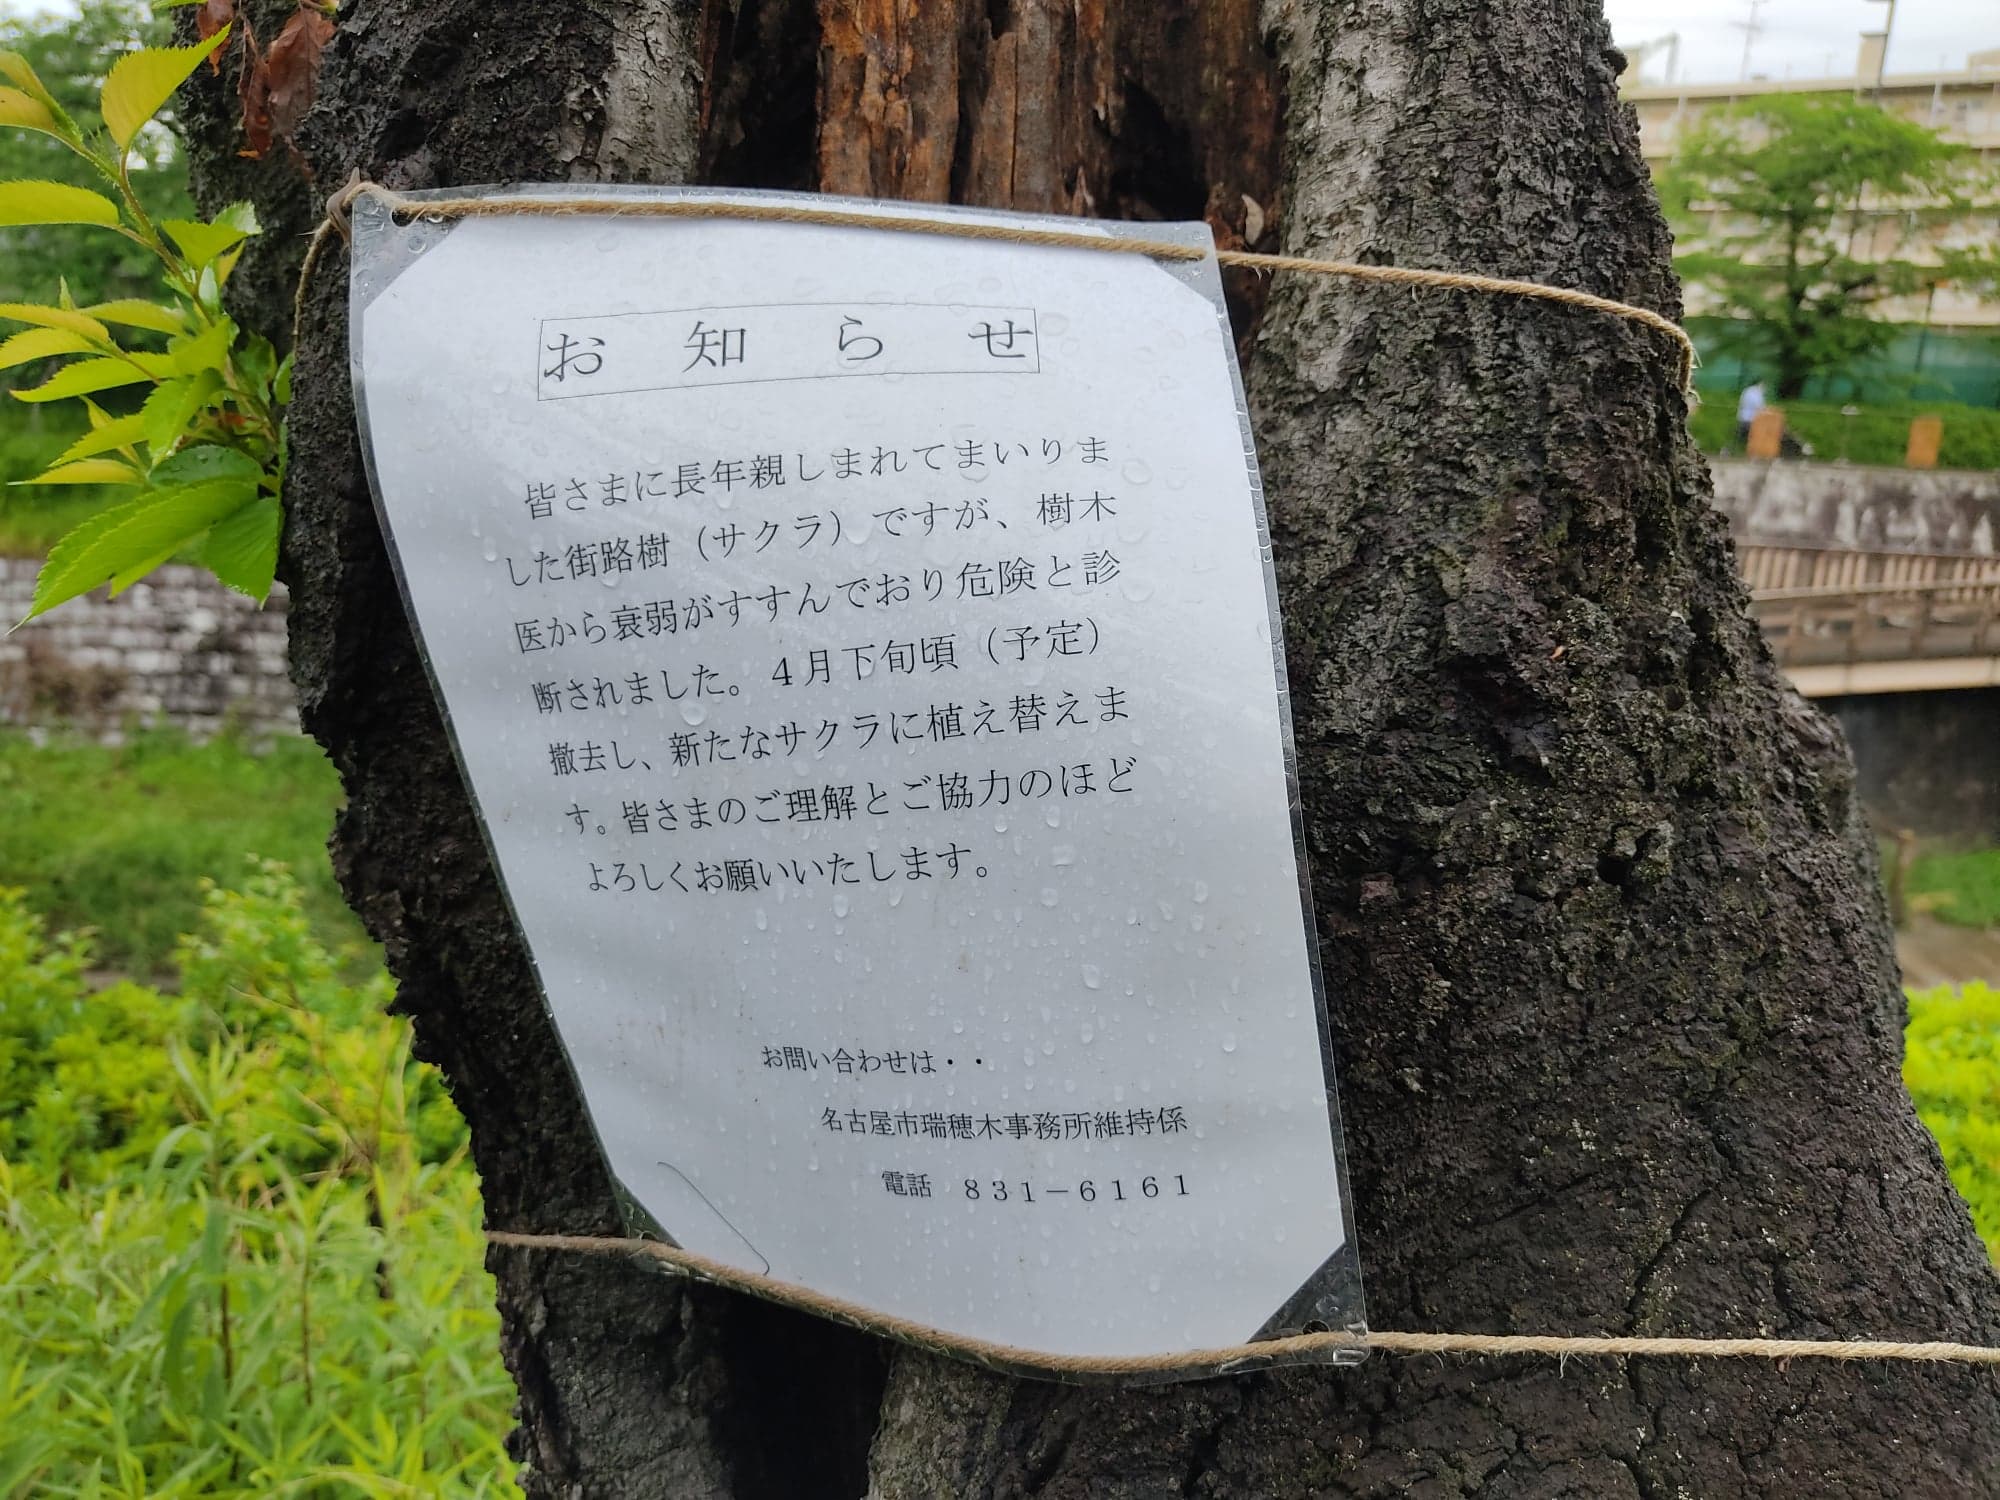 お知らせ
皆さまに長年親しまれてまいりま
した街路樹（サクラ）ですが、樹木
医から衰弱がすすんでおり危険と診
断されました。４月下旬頃（予定）
撤去し、新たなサクラに植え替えま
す。皆さまのご理解とご協力のほど
よろしくお願いいたします。
お問い合わせは・・
名古屋市瑞穂木事務所維持係
電話　８３１－６１６１